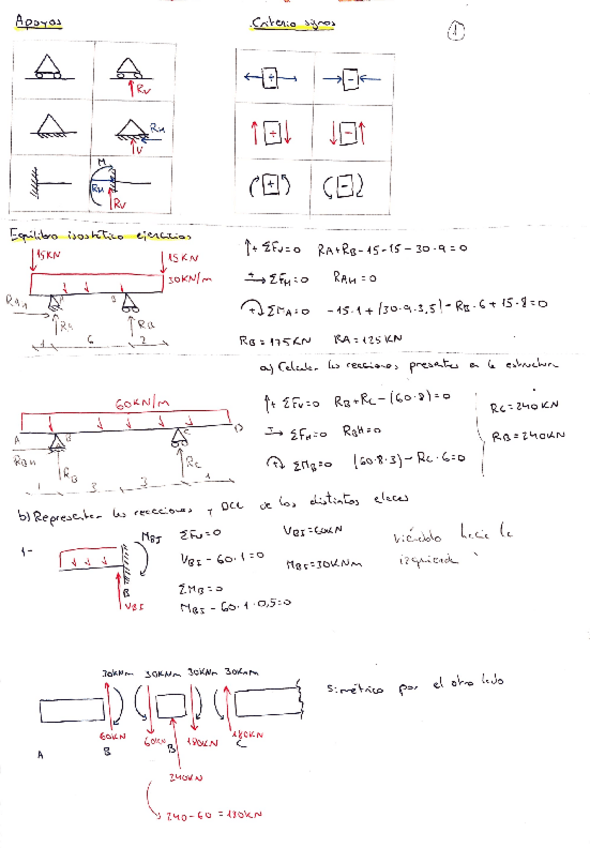 Apoyos
Criterio signos
1
+
-
RV
RH
V
+
-
M
RH
RV
+
-
Equilibrio isostático ejercicios
15KN
15KN
30KN/m
RAH
A
B
RA
RB
1
6
2
↑+ ΣFV=0 RA+RB-15-15-30·9=0
→+ ΣFH=0 RAH=0
+ ΣMA=0 -15·1+(30·9·3,5)-RB·6+15·8=0
RB=175KN RA=125KN
a) Calcular las reacciones presentes en la estructura
60KN/M
A
B
C
D
RBH
RB
RC
1
3
3
1
↑+ ΣFV=0 RB+RC-(60·8)=0
→+ ΣFH=0 RBH=0
+ ΣMB=0 (60·8·3)-RC·6=0
RC=240KN
RB=240KN
b) Representar las reacciones y DCL de los distintos
1-
MBI
B
VBI
ΣFV=0
VBI-60·1=0
ΣMB=0
MBI-60·1·0,5=0
VBI=60KN
MBI=30KNm
viéndolo hacia la
izquierda
30KNm 30KNm 30KNm 30KNm
60KN
60KN
180KN
180KN
A
B
B
C
240KN
240-60=180KN
Simétrico por el otro lado